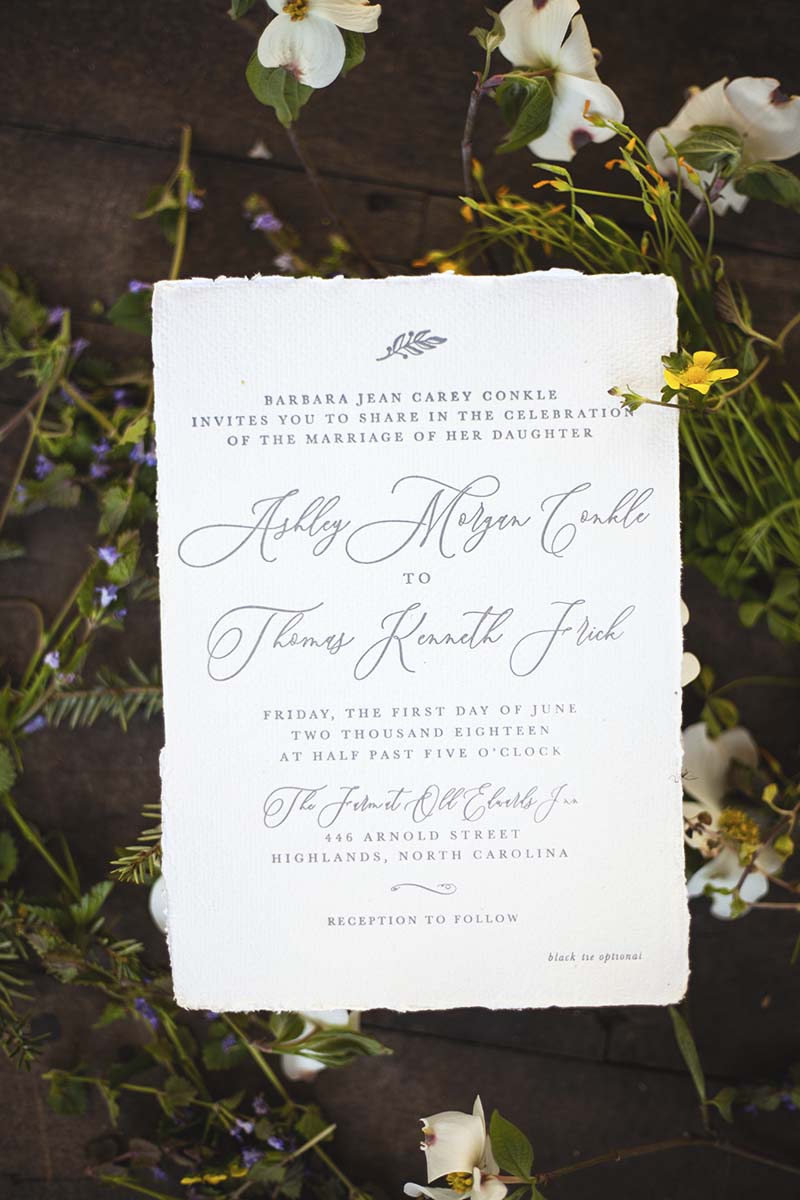 BARBARA JEAN CAREY CONKLE
INVITES YOU TO SHARE IN THE CELEBRATION
OF THE MARRIAGE OF HER DAUGHTER
Ashley Morgan Conkle
TO
Thomas Kenneth Frick
FRIDAY, THE FIRST DAY OF JUNE
TWO THOUSAND EIGHTEEN
AT HALF PAST FIVE O'CLOCK
The Farm at Old Edwards Inn
446 ARNOLD STREET
HIGHLANDS, NORTH CAROLINA
RECEPTION TO FOLLOW
black tie optional